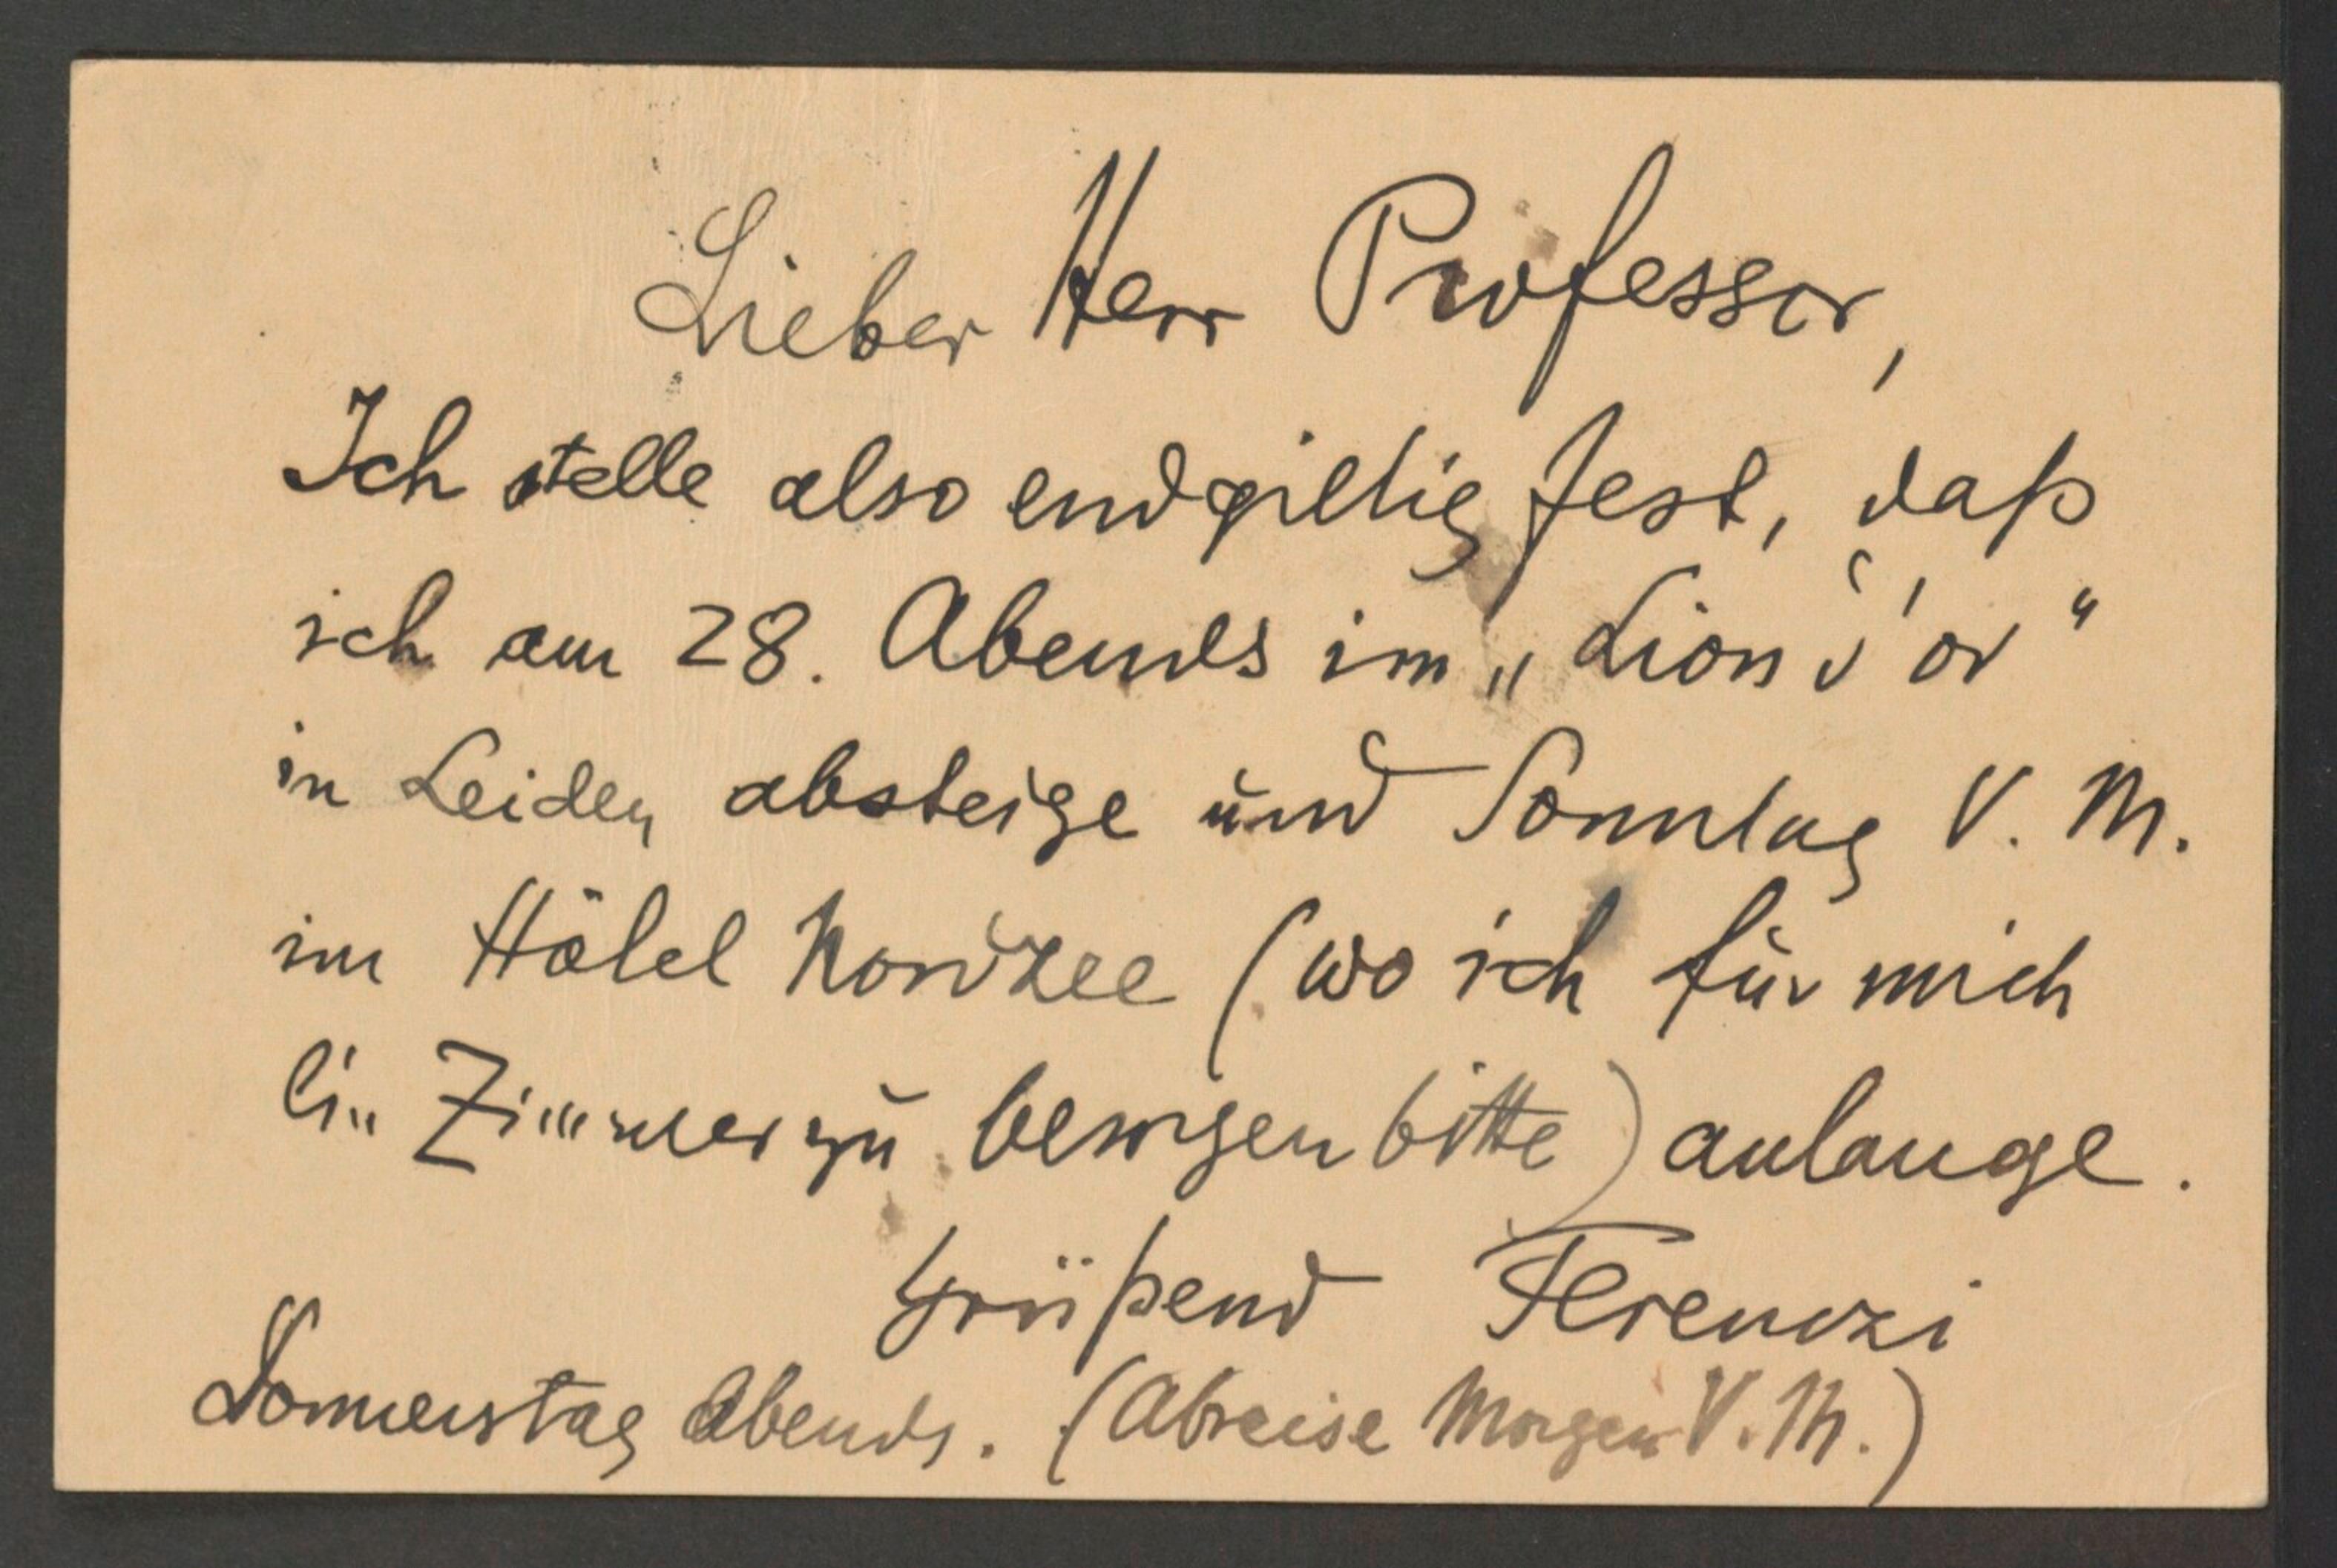 Lieber Herr Professor,
Ich stelle also endgiltig fest, daß
ich am 28. Abends im „Lion d'or“
in Leiden absteige und Sonntag V. M.
im Hôtel Nordzee (wo ich für mich
ein Zimmer zu besorgen bitte) anlange.
Grüßend Ferenczi
Donnerstag Abends. (Abreise Morgen V. M.)